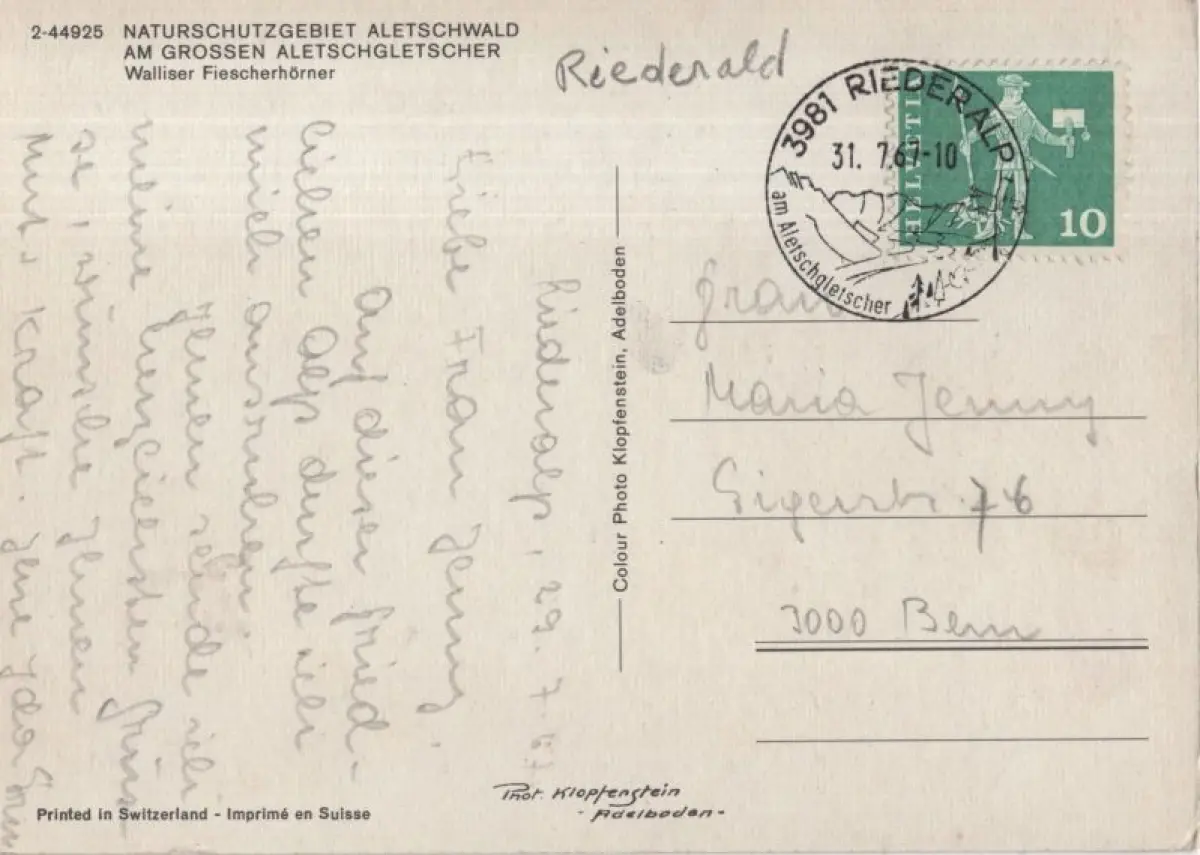 2-44925 NATURSCHUTZGEBIET ALETSCHWALD
AM GROSSEN ALETSCHGLETSCHER
Walliser Fiescherhörner
Riederald
3981 RIEDERALP
31. 7.67-10
am Aletschgletscher
HELVETIA
10
Riederalp, 29. 7. 67
Liebe Frau Jenny.
Auf dieser fried-
lichen Alp durfte ich
mich ausruhen.
Ihnen sende ich
meine herzlichsten Grüs-
se, wünsche Ihnen
Mut u Kraft. Ihre Ida
Colour Photo Klopfenstein, Adelboden
Frau
Maria Jenny
Eigerstr. 76
3000 Bern
Phot. Klopfenstein
- Adelboden -
Printed in Switzerland - Imprimé en Suisse